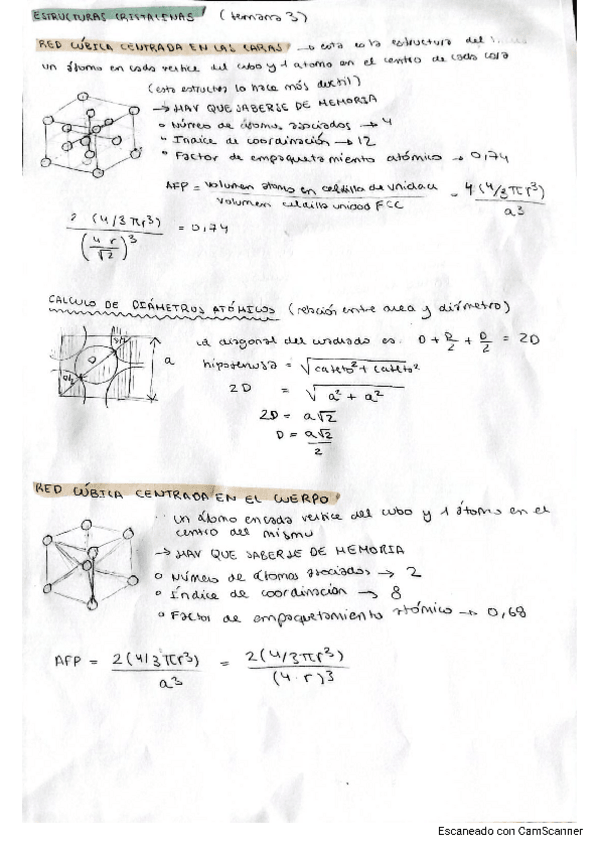 ESTRUCTURAS CRISTALINAS (temario 3)
RED CÚBICA CENTRADA EN LAS CARAS → esta es la estructura del
un átomo en cada vertice del cubo y 1 atomo en el centro de cada cara
(esta estructura lo hace más ductil)
→ HAY QUE SABERSE DE MEMORIA
• Número de átomos asociados → 4
• Indice de coordinación → 12
• Factor de empaquetamiento atómico → 0,74
AFP = volumen atomo en celdilla de unidad / volumen celdilla unidad FCC = 4(4/3πr³) / a³
(4/3πr³) / (4r/√2)³ = 0,74
CALCULO DE DIÁMETROS ATÓMICOS (relación entre area y diámetro)
La diagonal del cuadrado es: D + D/2 + D/2 = 2D
D a
hipotenusa = √cateto² + cateto²
2D = √a² + a²
2D = a√2
D = a√2/2
RED CÚBICA CENTRADA EN EL CUERPO
un átomo en cada vertice del cubo y 1 átomo en el
centro del mismo
→ HAY QUE SABERSE DE MEMORIA
• Número de átomos asociados → 2
• Índice de coordinación → 8
• Factor de empaquetamiento atómico → 0,68
AFP = 2(4/3πr³) / a³ = 2(4/3πr³) / (4·r)³
Escaneado con CamScanner